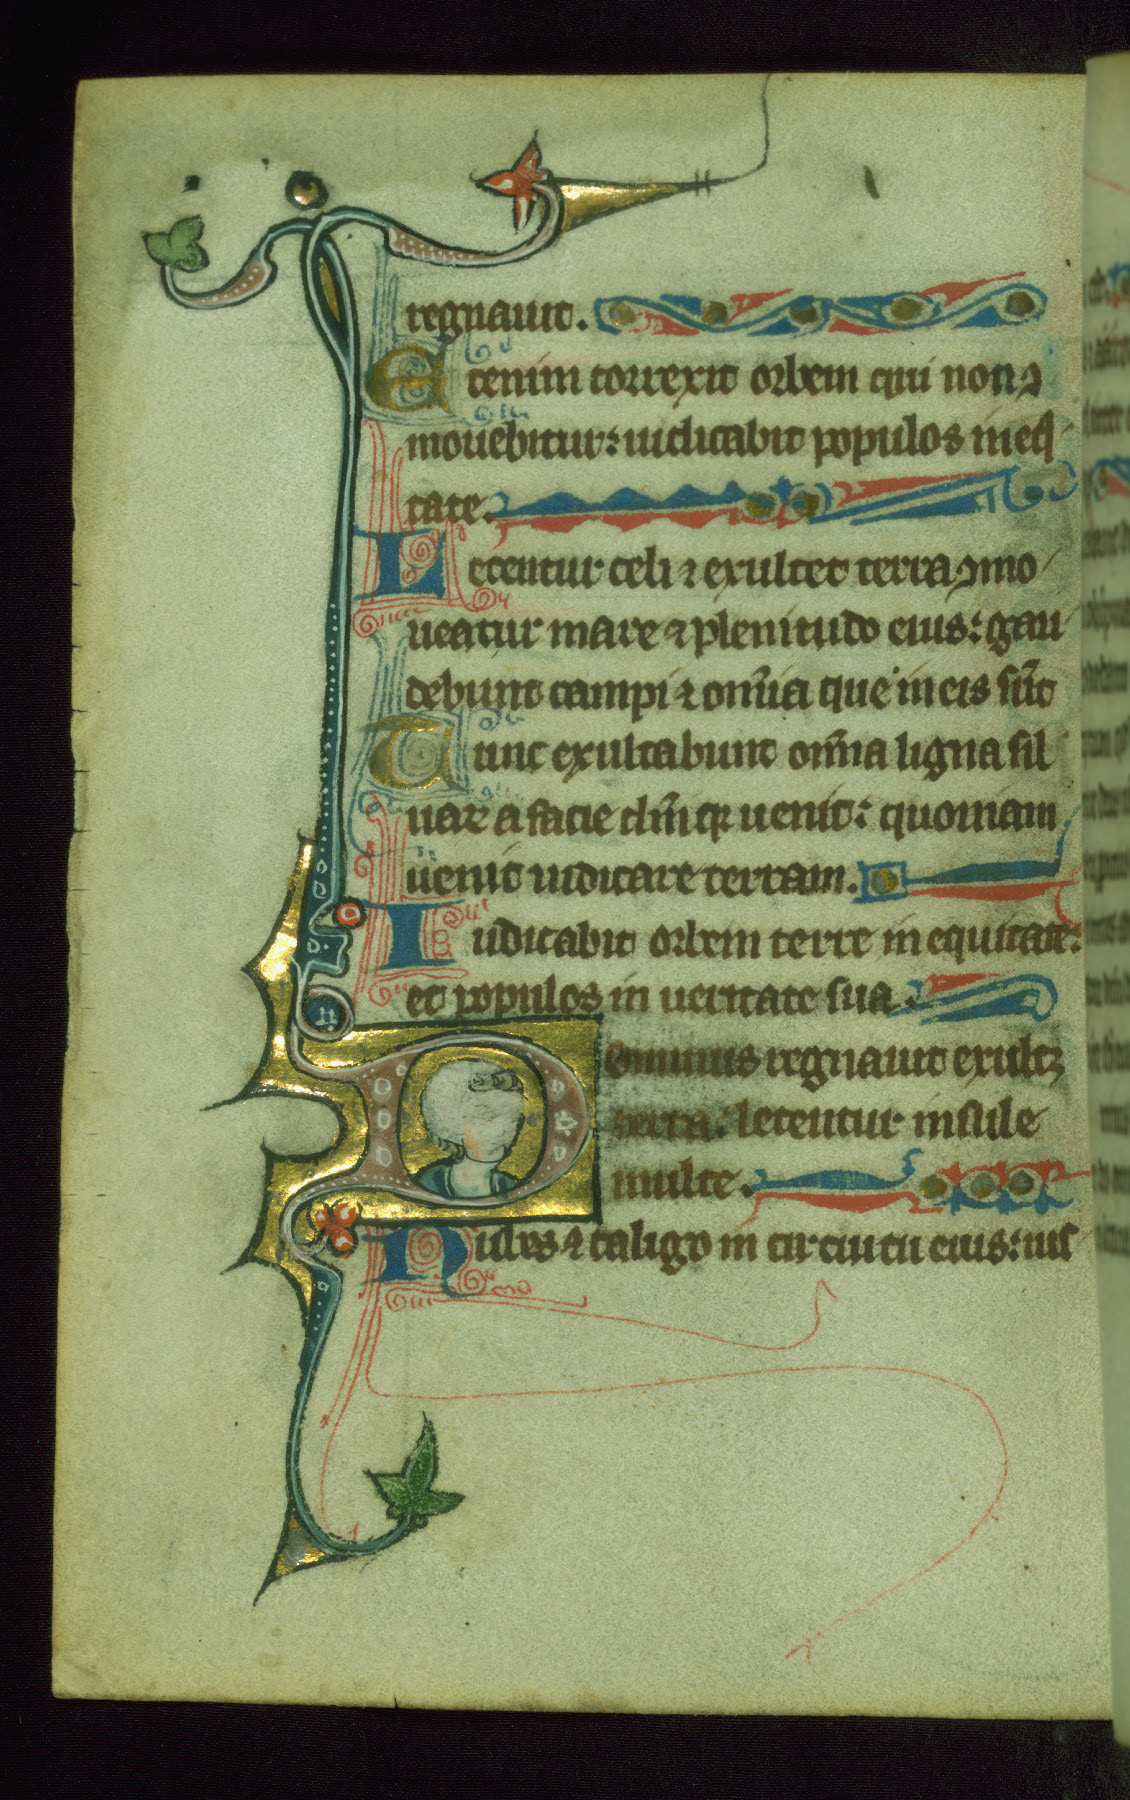 regnauit.
Etenim correxit orbem qui non
mouebitur: iudicabit populos in eq
tate.
Letentur celi ⁊ exultet terra ꝯmo
ueatur mare ⁊ plenitudo eius: gau
debunt campi ⁊ om̄ia que in eis sūt
Tunc exultabunt om̄a ligna sil
uar̄ a facie dn̄i qr uenit: quoniam
uenit iudicare terram.
Iudicabit orbem terre in equitate:
et populos in ueritate sua.
Dominus regnauit exultꝫ
terra: letentur insule
multe.
Nubes ⁊ caligo in circuitu eius: ius